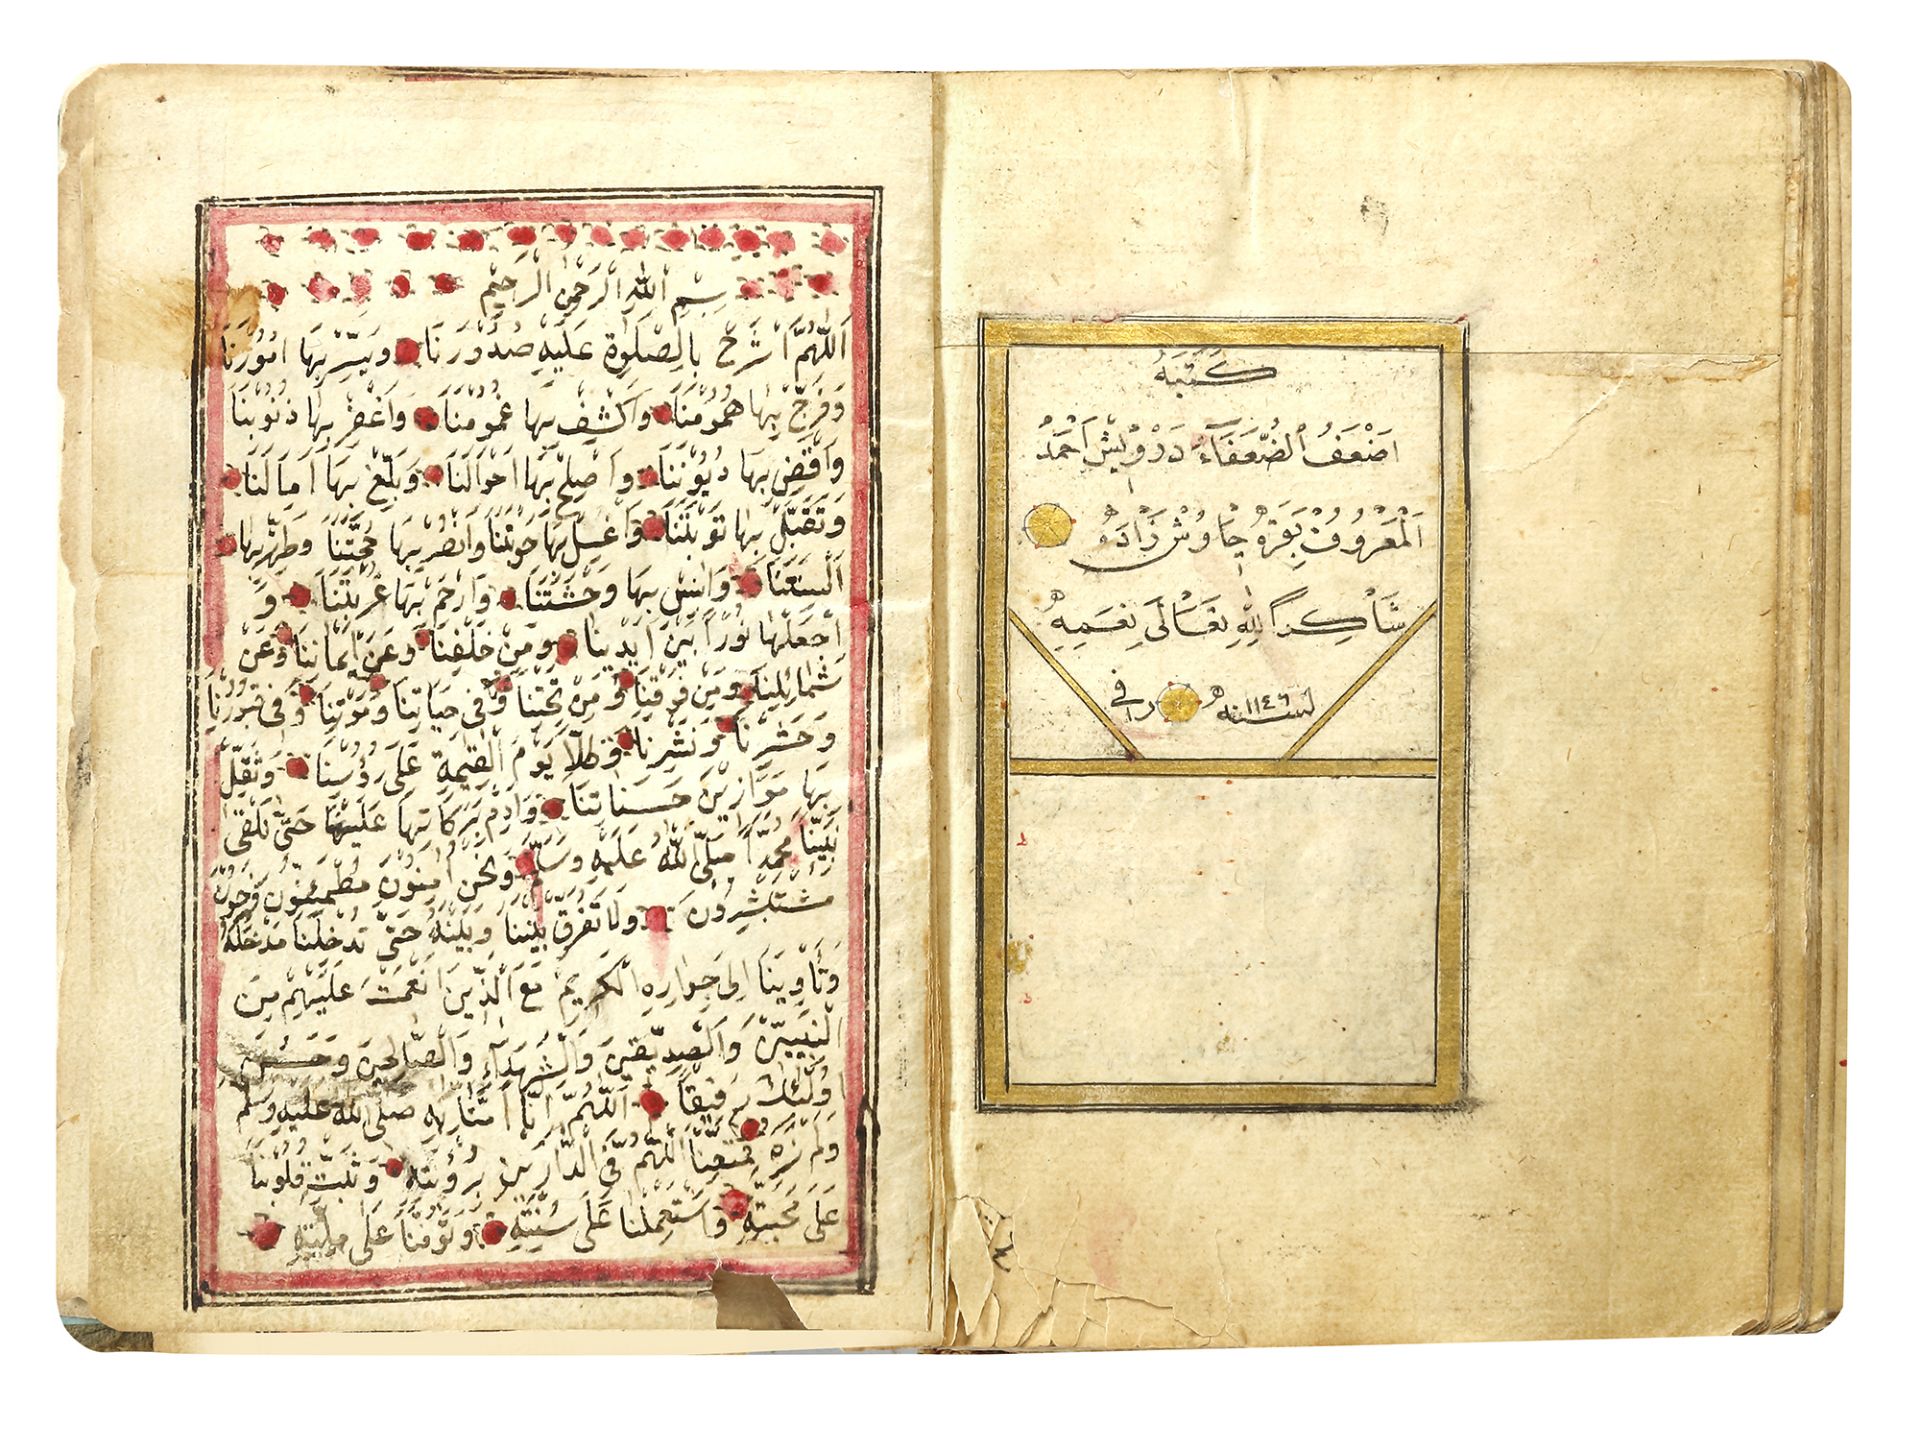 كَتَبَهُ
اَضْعَفُ الضُّعَفَآءِ دَرْوِيشْ اَحْمَدْ
اَلْمَعْرُوفْ بَقَرَهْ چَاوُشْ زَادَهْ
شَاكِرًا لِلّٰهِ تَعَالَى نِعَمِهِ
لسنة ١١٤٦
بِسْمِ اللّٰهِ الرَّحْمٰنِ الرَّحِيمِ
اَللّٰهُمَّ اشْرَحْ بِالصَّلٰوةِ عَلَيْهِ صُدُورَنَا وَيَسِّرْ بِهَا اُمُورَنَا
وَفَرِّجْ بِهَا هُمُومَنَا وَاكْشِفْ بِهَا غُمُومَنَا وَاغْفِرْ بِهَا ذُنُوبَنَا
وَاقْضِ بِهَا دُيُونَنَا وَاَصْلِحْ بِهَا اَحْوَالَنَا وَبَلِّغْ بِهَا اٰمَالَنَا
وَتَقَبَّلْ بِهَا تَوْبَتَنَا وَاغْسِلْ بِهَا حَوْبَتَنَا وَانْصُرْ بِهَا حُجَّتَنَا وَطَهِّرْ بِهَا
اَلْسِنَتَنَا وَاٰنِسْ بِهَا وَحْشَتَنَا وَارْحَمْ بِهَا غُرْبَتَنَا وَ
اجْعَلْهَا نُورًا بَيْنَ اَيْدِينَا وَمِنْ خَلْفِنَا وَعَنْ اَيْمَانِنَا وَعَنْ
شَمَائِلِنَا وَمِنْ فَوْقِنَا وَمِنْ تَحْتِنَا وَفِي حَيَاتِنَا وَمَوْتِنَا وَفِي قُبُورِنَا
وَحَشْرِنَا وَنَشْرِنَا وَظِلًّا يَوْمَ الْقِيٰمَةِ عَلَى رُؤُسِنَا وَثَقِّلْ
بِهَا مَوَازِينَ حَسَنَاتِنَا وَاَدِمْ بَرَكَاتِهَا عَلَيْنَا حَتَّى نَلْقَى
نَبِيَّنَا مُحَمَّدًا صَلَّى اللّٰهُ عَلَيْهِ وَسَلَّمَ وَنَحْنُ اٰمِنُونَ مُطْمَئِنُّونَ فَرِحُونَ
مُسْتَبْشِرُونَ وَلَا تُفَرِّقْ بَيْنَنَا وَبَيْنَهُ حَتَّى تُدْخِلَنَا مَدْخَلَهُ
وَتُأْوِيَنَا اِلَى جِوَارِهِ الْكَرِيمِ مَعَ الَّذِينَ اَنْعَمْتَ عَلَيْهِمْ مِنَ
النَّبِيِّينَ وَالصِّدِّيقِينَ وَالشُّهَدَاءِ وَالصَّالِحِينَ وَحَسُنَ
اُولٰئِكَ رَفِيقًا اَللّٰهُمَّ اِنَّا اٰمَنَّا بِهِ صَلَّى اللّٰهُ عَلَيْهِ وَسَلَّمَ
وَلَمْ نَرَهُ فَمَتِّعْنَا اللّٰهُمَّ فِي الدَّارَيْنِ بِرُؤْيَتِهِ وَثَبِّتْ قُلُوبَنَا
عَلَى مَحَبَّتِهِ وَاسْتَعْمِلْنَا عَلَى سُنَّتِهِ وَتَوَفَّنَا عَلَى مِلَّتِهِ